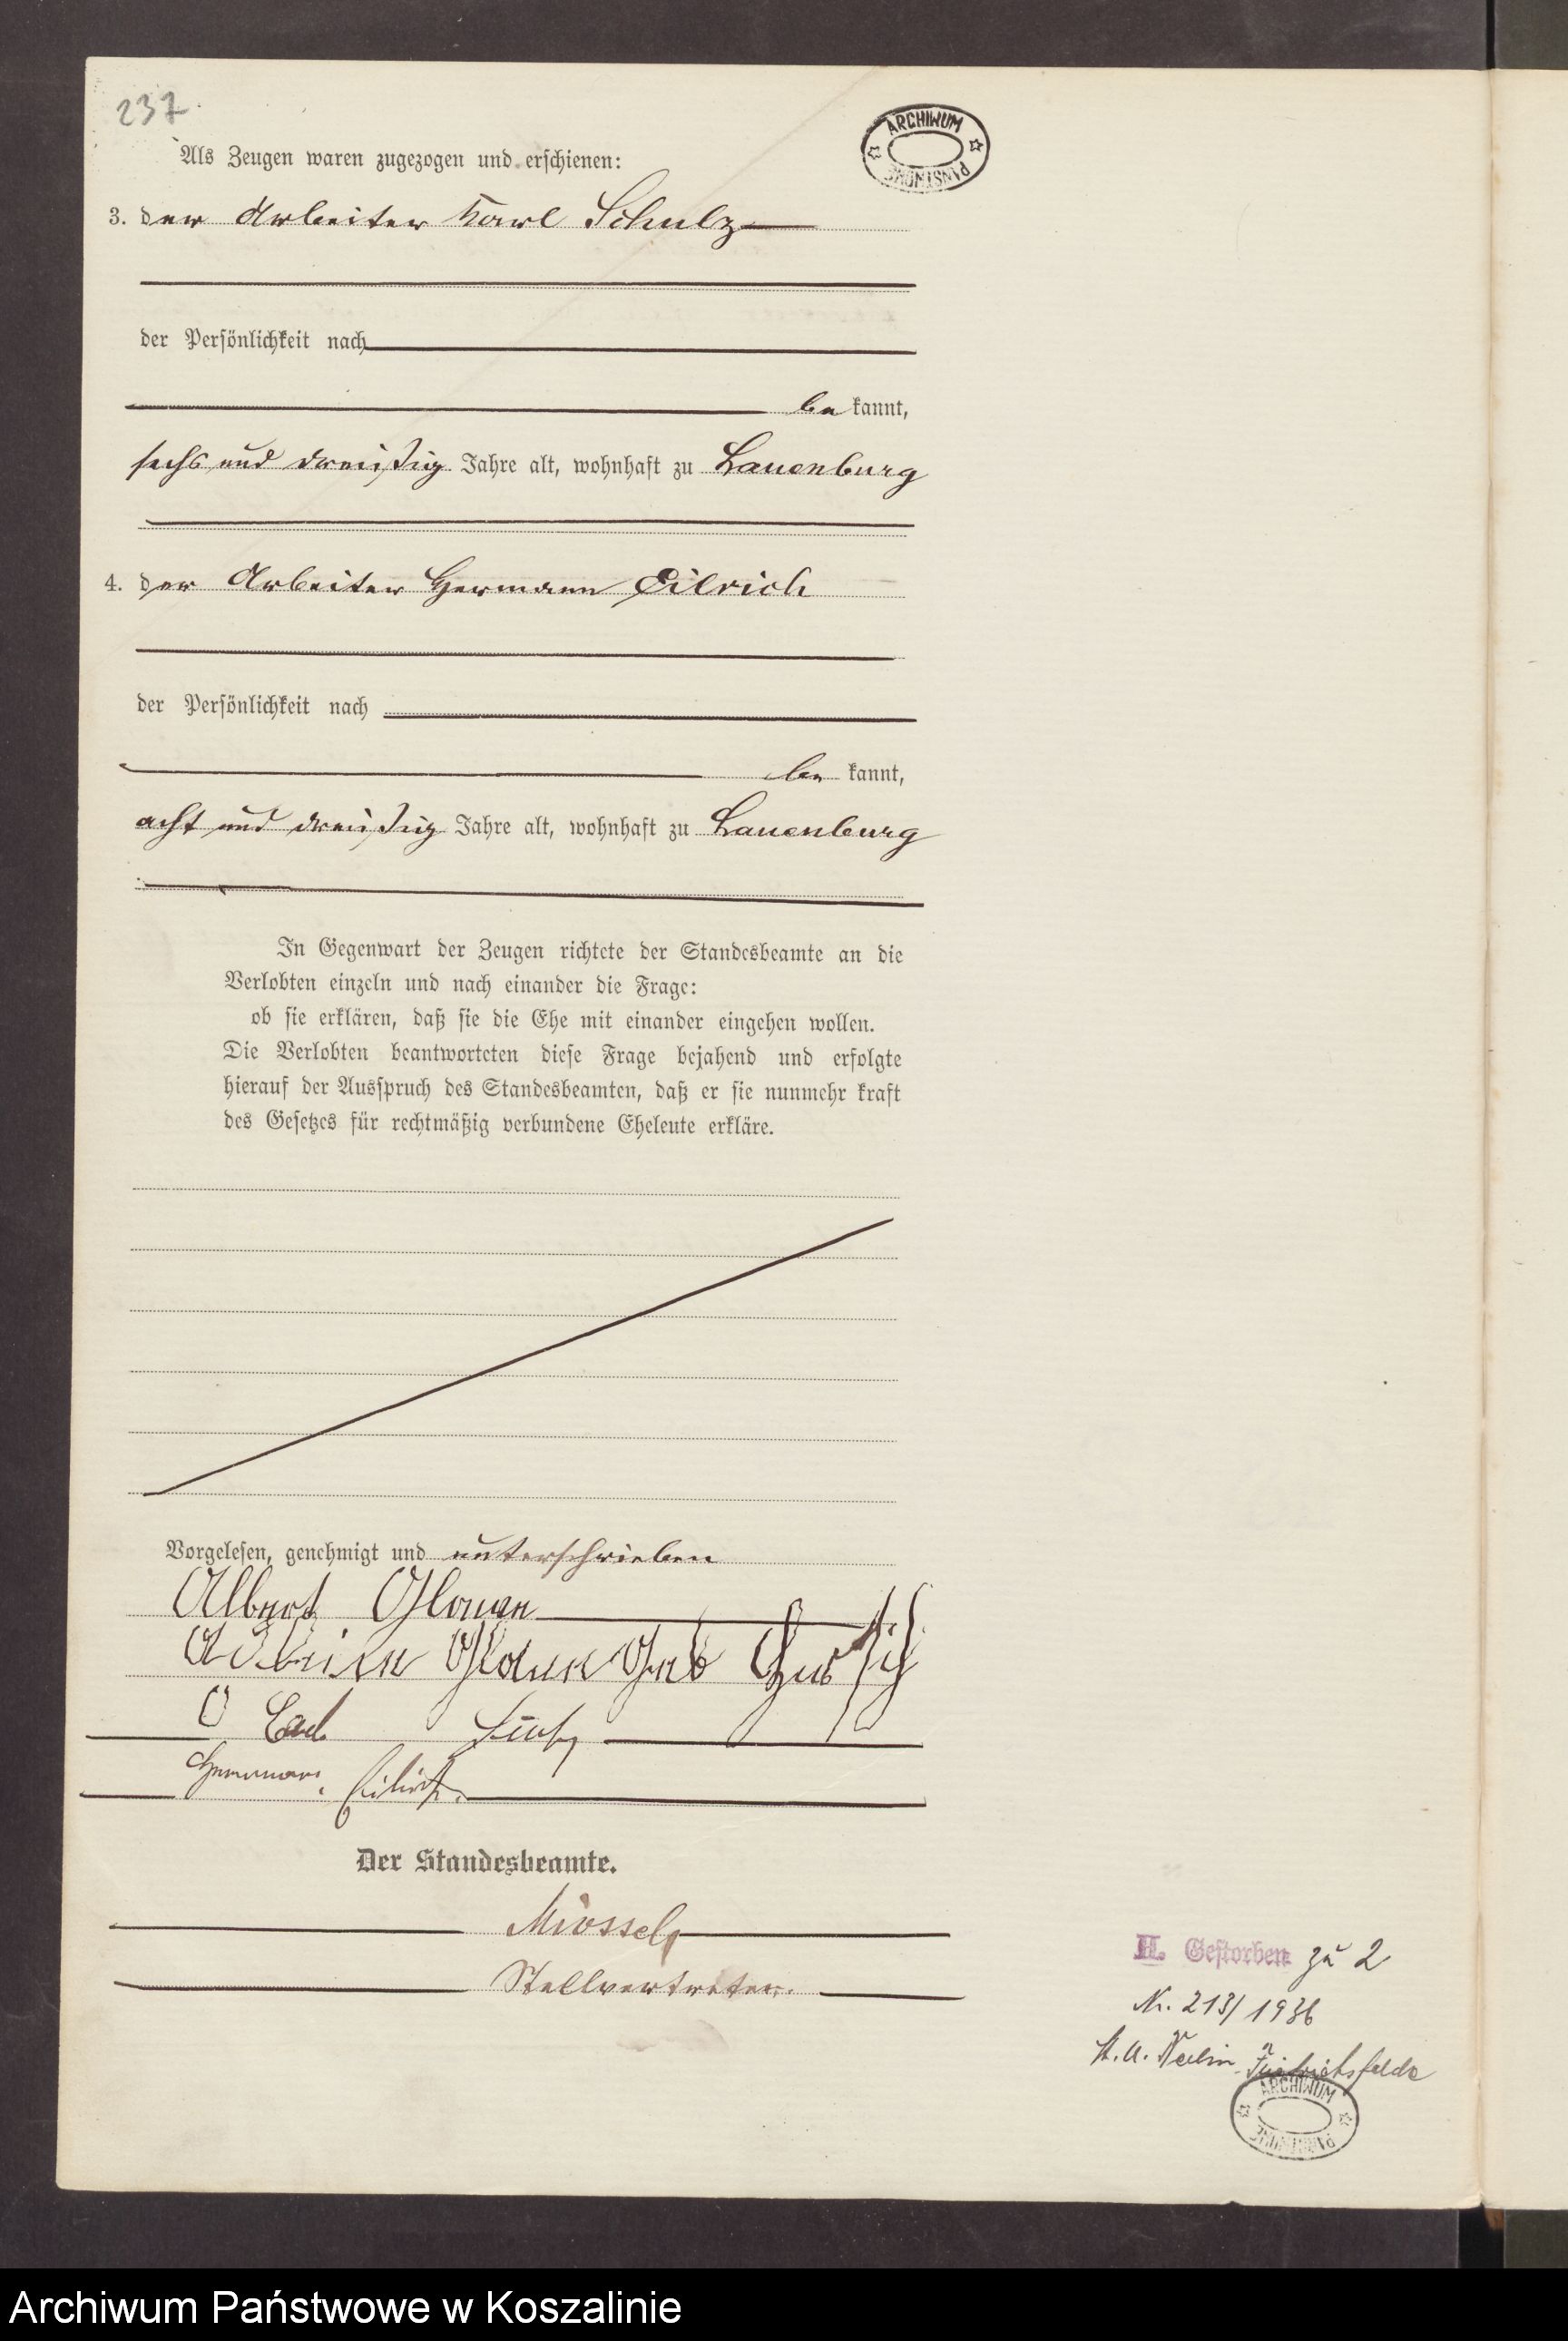 237.
ARCHIWUM PAŃSTWOWE
Als Zeugen waren zugezogen und erschienen:
3. der Arbeiter Karl Schulz
der Persönlichkeit nach
be kannt,
sechs und dreißig Jahre alt, wohnhaft zu Lauenburg
4. der Arbeiter Hermann Eilrich
der Persönlichkeit nach
be kannt,
acht und dreißig Jahre alt, wohnhaft zu Lauenburg
In Gegenwart der Zeugen richtete der Standesbeamte an die
Verlobten einzeln und nach einander die Frage:
ob sie erklären, daß sie die Ehe mit einander eingehen wollen.
Die Verlobten beantworteten diese Frage bejahend und erfolgte
hierauf der Ausspruch des Standesbeamten, daß er sie nunmehr kraft
des Gesetzes für rechtmäßig verbundene Eheleute erkläre.
Vorgelesen, genehmigt und unterschrieben
Albert Glawe
Glawe Geb
Carl
Hermann Eilrich.
Der Standesbeamte.
Stellvertreter.
II. Gestorben zu 2
Nr. 213/1936
St. A. Berlin-Friedrichsfelde
ARCHIWUM PAŃSTWOWE
Archiwum Państwowe w Koszalinie